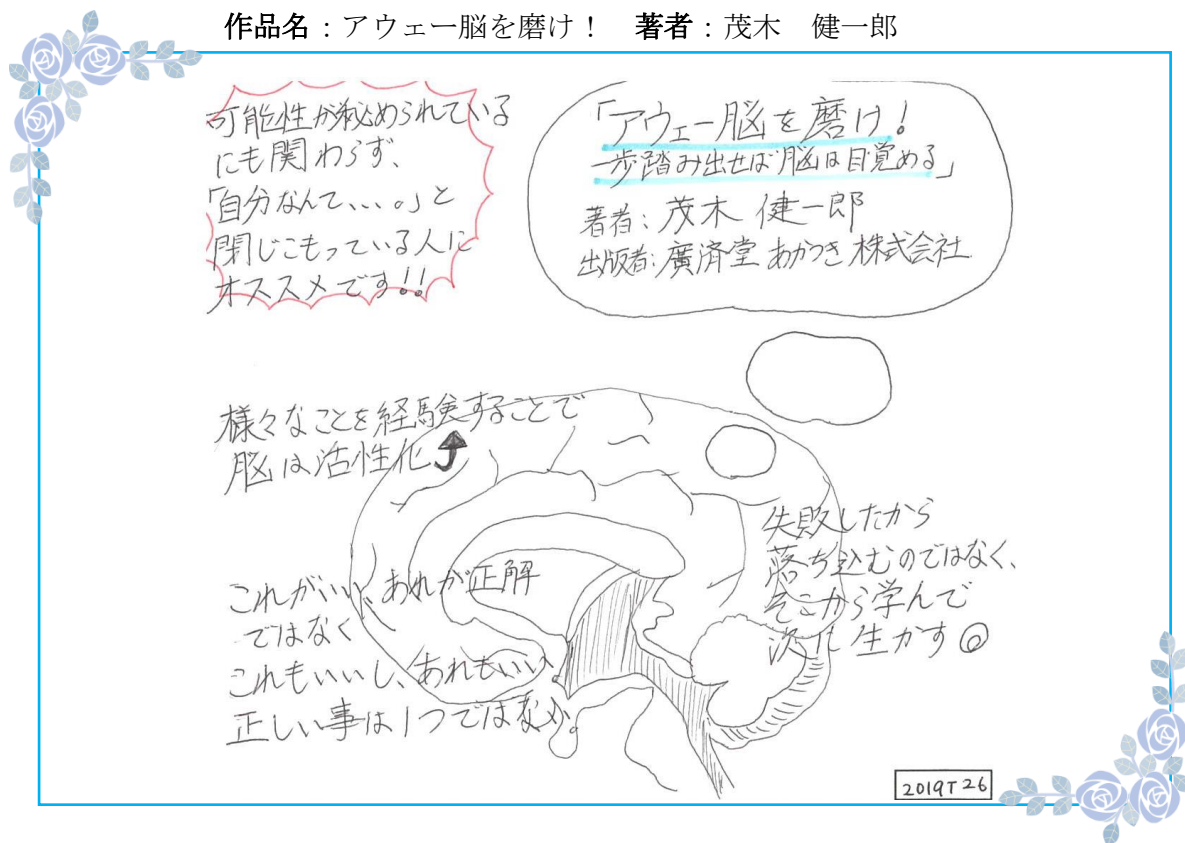 作品名：アウェー脳を磨け！　著者：茂木　健一郎
可能性が秘められている
にも関わらず、
「自分なんて、、、。」と
閉じこもっている人に
オススメです!!
「アウェー脳を磨け!
一歩踏み出せば脳は目覚める」
著者:茂木 健一郎
出版者:廣済堂 あかつき 株式会社
様々なことを経験することで
脳は活性化
これがいい、あれが正解
ではなく
これもいいし、あれもいい。
正しい事は1つではない。
失敗したから
落ち込むのではなく、
そこから学んで
次に生かす
2019T26